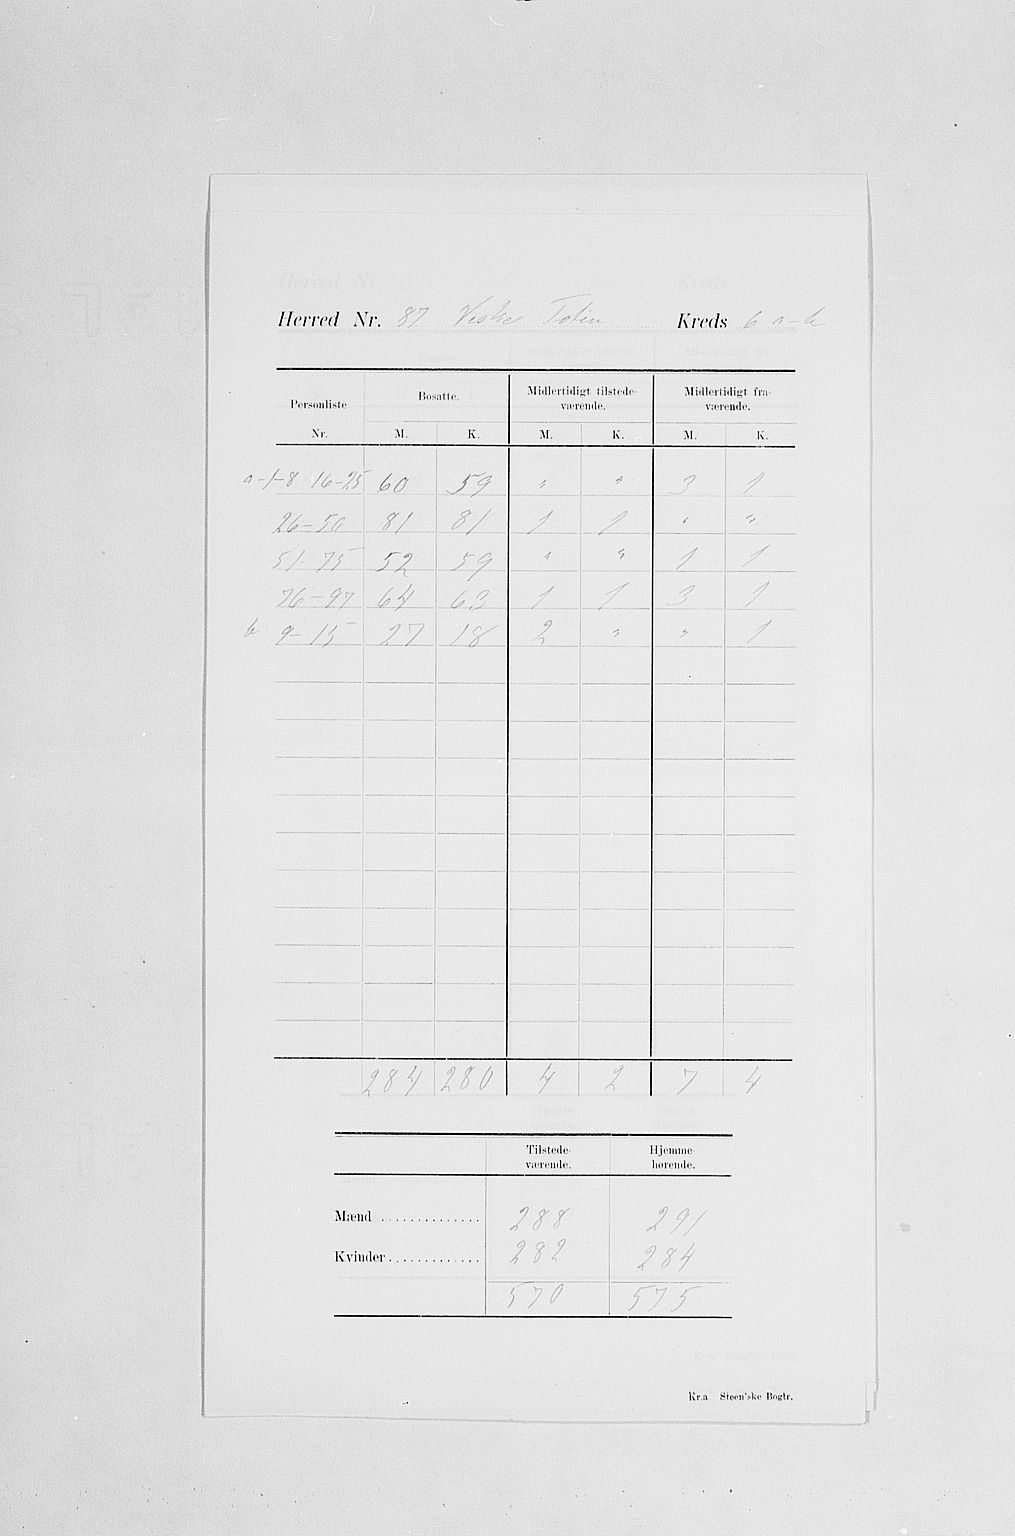 Herred Nr. 87 Vestre Toten Kreds 6 a-b
Personliste Bosatte. Midlertidigt tilstede- Midlertidigt fra-
værende. værende.
Nr. M. K. M. K. M. K.
a-1-8 16-25 60 59 " " 3 1
26-50 81 81 1 1 " "
51-75 52 59 " " 1 1
76-97 64 63 1 1 3 1
b 9-15 27 18 2 " " 1
284 280 4 2 7 4
Tilstede- Hjemme-
værende. hørende.
Mænd .............. 288 291
Kvinder............. 282 284
570 575
Kr.a Steen'ske Bogtr.